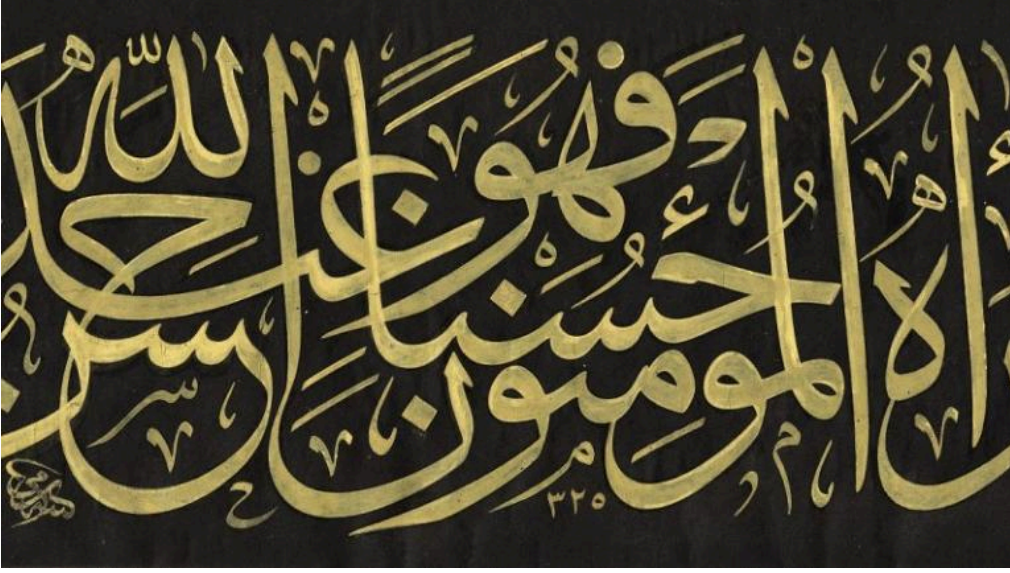 رأه المؤمنون حسنًا فهو عند الله حسن
٣٢٥